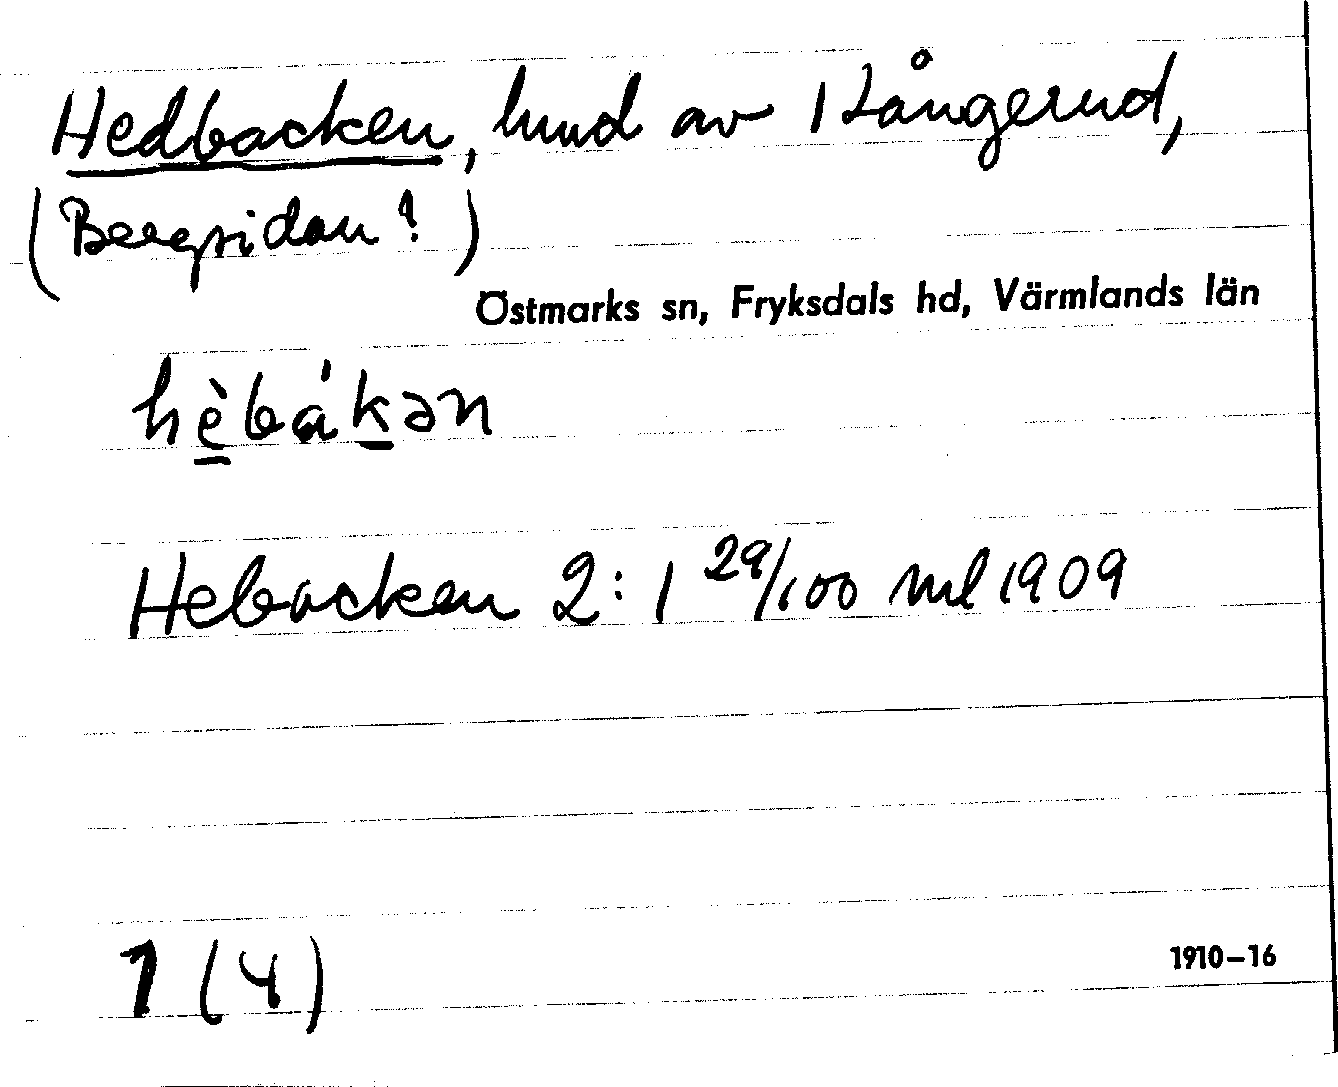 Hedbacken, hmd av 1 Långerud,
(Bergsidan?)
Östmarks sn, Fryksdals hd, Värmlands län
hèbákən
Hebacken 2: 1 29/100 ml 1909
1 (4)
1910–16